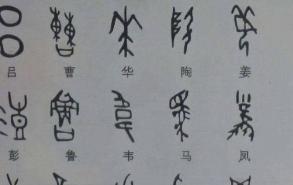 吕 曹 华 陶 姜
彭 鲁 韦 马 凤